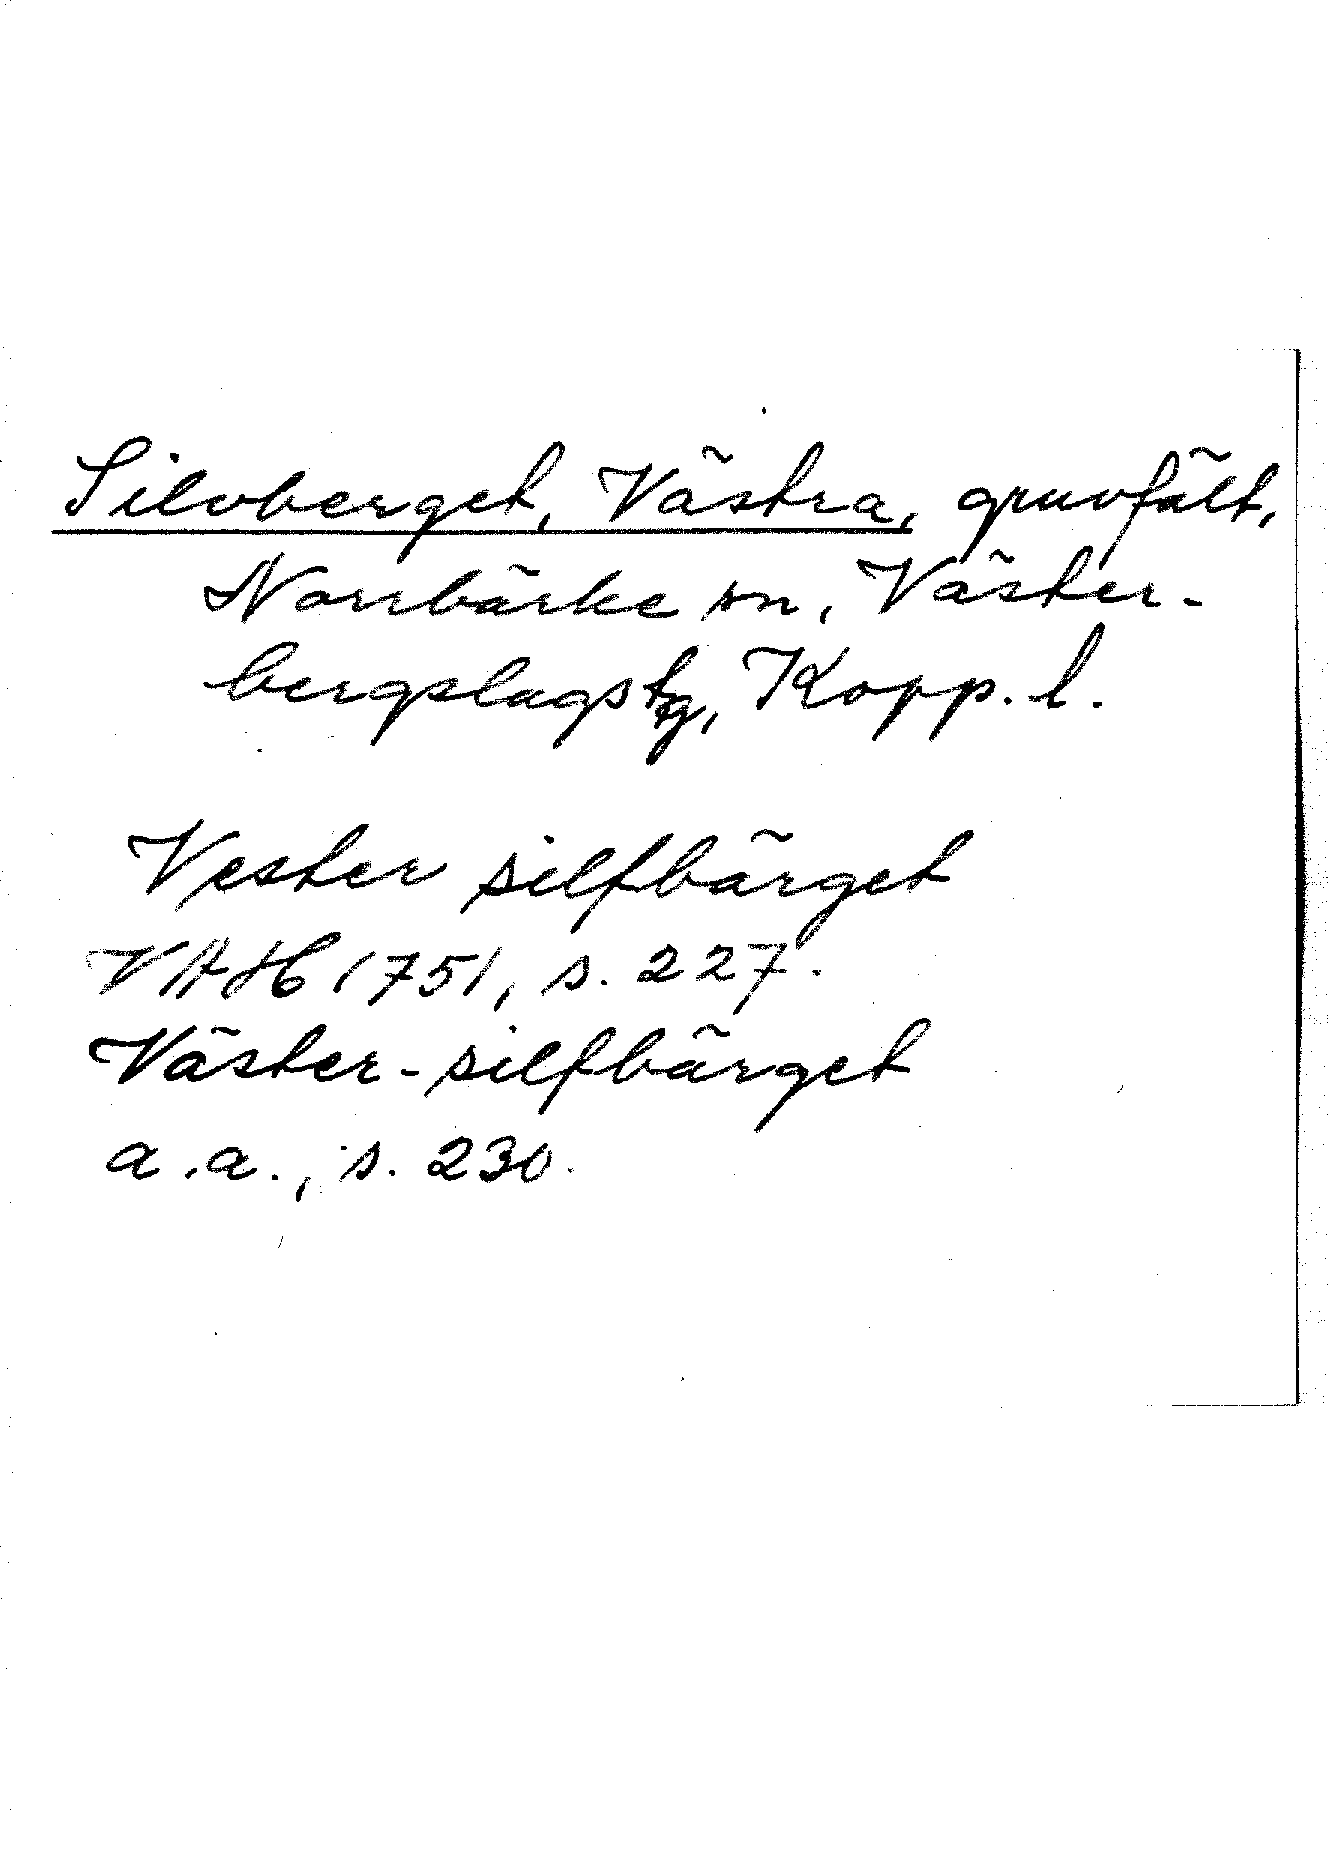 Silvberget, Västra, gruvfält,
Norrbärke sn, Väster-
bergslags tg, Kopp. l.
Vester silfbärget
VAH 1751, s. 227.
Väster-silfbärget
a.a., s. 230.